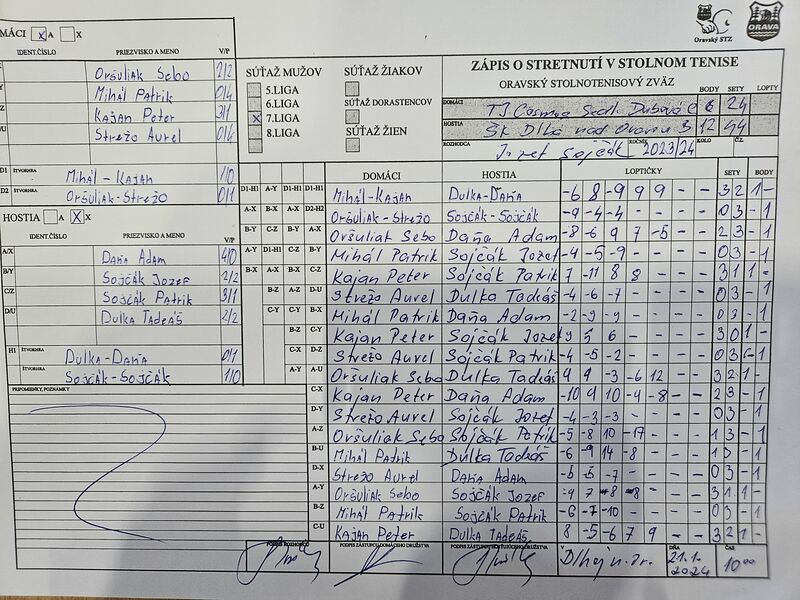 MÁCI X A X
IDENT.ČÍSLO PRIEZVISKO A MENO V/P
Oršuliak Sebo 2/2
Mihál Patrik 0/4
Kajan Peter 3/1
Strežo Aurel 0/4
D1 ŠTVORHRA Mihál-Kajan 1/0
D2 ŠTVORHRA Oršuliak-Strežo 0/1
HOSTIA A X X
IDENT.ČÍSLO PRIEZVISKO A MENO V/P
A/X Daňa Adam 4/0
B/Y Sojčák Jozef 2/2
C/Z Sojčák Patrik 3/1
D/U Dulka Tadeáš 2/2
H1 ŠTVORHRA Dulka-Daňa 0/1
ŠTVORHRA Sojčák-Sojčák 1/0
PRIPOMIENKY, POZNÁMKY
SÚŤAŽ MUŽOV
5.LIGA
6.LIGA
X 7.LIGA
8.LIGA
SÚŤAŽ ŽIAKOV
SÚŤAŽ DORASTENCOV
SÚŤAŽ ŽIEN
Oravský STZ
ORAVA
ZÁPIS O STRETNUTÍ V STOLNOM TENISE
ORAVSKÝ STOLNOTENISOVÝ ZVÄZ BODY SETY LOPTY
DOMÁCI TJ Cosmos Sedl. Dubová C 6 24
HOSTIA ŠK Dlhá nad Oravou B 12 44
ROZHODCA Jozef Sojčák ROČNÍK 2023/24 KOLO Č.Z.
DOMÁCI HOSTIA LOPTIČKY SETY BODY
D1-H1 A-Y D1-H1 D1-H1 Mihál-Kajan Dulka-Daňa -6 8 -9 9 9 - - 3 2 1 -
A-X B-X A-X D2-H2 Oršuliak-Strežo Sojčák-Sojčák -9 -4 -4 - - - - 0 3 - 1
B-Y C-Z B-Y A-X Oršuliak Sebo Daňa Adam -8 -6 9 7 -5 - - 2 3 - 1
A-Y D1-H1 C-Z B-Y Mihál Patrik Sojčák Jozef -4 -5 -9 - - - - 0 3 - 1
B-X A-X B-X C-Z Kajan Peter Sojčák Patrik 7 -11 8 8 - - - 3 1 1 -
B-Z A-Z D-U Strežo Aurel Dulka Tadeáš -4 -6 -7 - - - - 0 3 - 1
C-Y C-Y B-X Mihál Patrik Daňa Adam -2 -9 -9 - - - - 0 3 - 1
B-Z C-Y Kajan Peter Sojčák Jozef 9 5 6 - - - - 3 0 1 -
C-X D-Z Strežo Aurel Sojčák Patrik -4 -5 -2 - - - - 0 3 - 1
A-Y A-U Oršuliak Sebo Dulka Tadeáš 9 9 -3 -6 12 - - 3 2 1 -
C-X Kajan Peter Daňa Adam -10 9 10 -4 -8 - - 2 3 - 1
D-Y Strežo Aurel Sojčák Jozef -4 -3 -3 - - - - 0 3 - 1
A-Z Oršuliak Sebo Sojčák Patrik -5 -8 10 -17 - - - 1 3 - 1
B-U Mihál Patrik Dulka Tadeáš -6 -9 14 -8 - - - 1 3 - 1
D-X Strežo Aurel Daňa Adam -5 -5 -7 - - - - 0 3 - 1
A-Y Oršuliak Sebo Sojčák Jozef 3 1 1 -
B-Z Mihál Patrik Sojčák Patrik -6 -7 -10 - - - - 0 3 - 1
C-U Kajan Peter Dulka Tadeáš 8 -5 -6 7 9 - - 3 2 1 -
PODPIS ROZHODCU PODPIS ZÁSTUPCU DOMÁCEHO DRUŽSTVA PODPIS ZÁSTUPCU HOSŤUJÚCEHO DRUŽSTVA V Dlhej n. Or. DŇA 21.1. 2024 ČAS 10:00